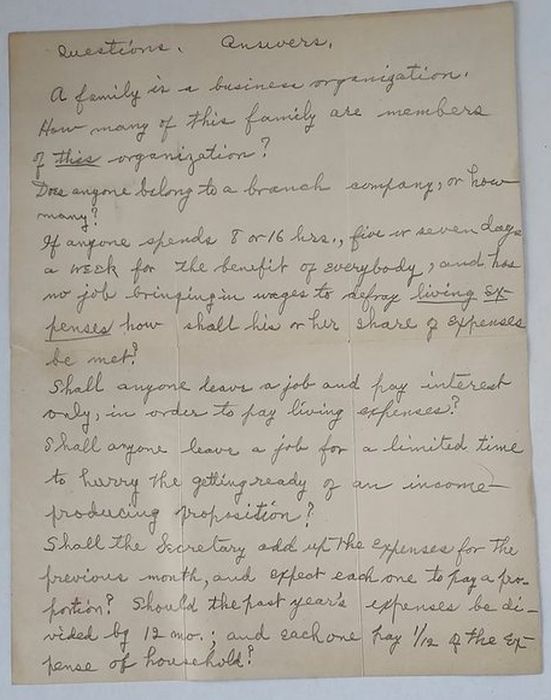 Questions. Answers.
A family is a business organization.
How many of this family are members
of this organization?
Does anyone belong to a branch company, or how
many?
If anyone spends 8 or 16 hrs., five or seven days
a week for the benefit of everybody, and has
no job bringing in wages to defray living ex-
penses how shall his or her share of expenses
be met?
Shall anyone leave a job and pay interest
only, in order to pay living expenses?
Shall anyone leave a job for a limited time
to hurry the getting ready of an income-
producing proposition?
Shall the Secretary add up the expenses for the
previous month, and expect each one to pay a pro-
portion? Should the past year's expenses be di-
vided by 12 mo.; and each one pay 1/12 of the ex-
pense of household?